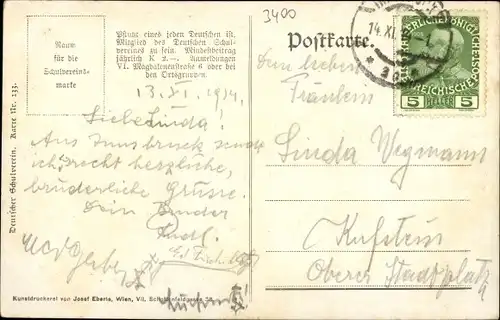 3400
Raum
für die
Schulvereins-
marke
Pflicht eines jeden Deutschen ist,
Mitglied des Deutschen Schul-
vereines zu sein. Mindestbeitrag
jährlich K 2.–. Anmeldungen
VI. Magdalenenstraße 6 oder bei
den Ortsgruppen.
Postkarte.
14. XI.
5 HELLER 5
13. XI. 1914.
Liebe Linda!
Aus Innsbruck sende
ich recht herzliche,
brüderliche Grüsse.
Dein Bruder
Rudl.
Fräulein
Linda Wegmann
Kufstein
Oberer Stadtplatz
Deutscher Schulverein. Karte Nr. 133.
Kunstdruckerei von Josef Eberle, Wien, VII. Schottenfeldgasse 38.